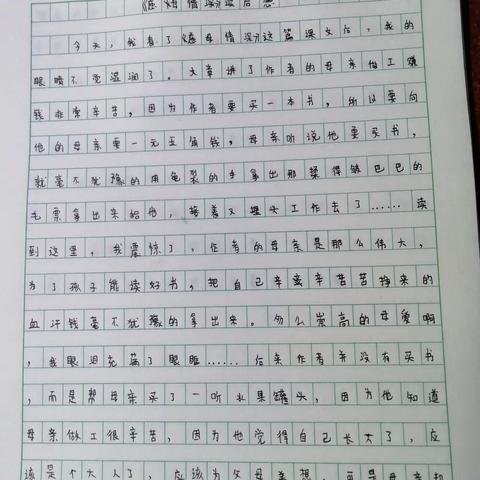 《慈母情深》读后感
今天，我看了《慈母情深》这篇课文后，我的
眼睛不觉湿润了。文章讲了作者的母亲做工赚
钱非常辛苦，因为作者要买一本书，所以要向
他的母亲要一元五角钱，母亲听说他要买书，
就毫不犹豫的用龟裂的手拿出那揉得皱巴巴的
毛票拿出来给他，接着又埋头工作去了……读
到这里，我震惊了，作者的母亲是那么伟大，
为了孩子能读好书，把自己辛辛苦苦挣来的
血汗钱毫不犹豫的拿出来。多么崇高的母爱啊
，我眼泪充满了眼眶……后来作者并没有买书
，而是帮母亲买了一听水果罐头，因为他知道
母亲做工很辛苦，因为他觉得自己长大了，应
该是个大人了，应该为父母着想，而是母亲却